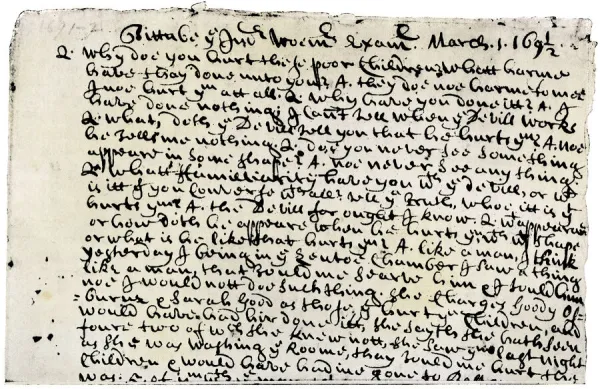 1691-2
Tittube ye Indn Woemn Exam. March. 1. 169 1/2
Q why doe you hurt these poor Children? whatt harme
have thay done unto you? A. they doe noe harme to mee
I noe hurt ym att all. Q why have you done itt? A. I
have done nothing; I Can't tell when ye Devill works
Q what, doth ye Devill tell you that he hurts ym? A. noe
he tells me nothing. Q doe you never See Something
appeare in Some shape? A. noe never See any thing.
Q whatt familliarity have you wth ye devill, or wt
is itt yt you Converse wthall? tell ye truth, whoe itt is yt
hurts ym? A. the Devill for ought I know. Q wt appearanc
or how doth he appeare when he hurts ym, with wt Shape
or what is he like that hurts ym? A. like a man, I think
yesterday I being in ye Lentoe Chamber I saw a thing
like a man, that tould me Searve him & I tould him
noe I would nott doe Such thing. She Charges Goody Os-
burne & Sarah Good as those yt hurt ye Children, and
would have had hir done itt, she sayth she hath seen
foure two of wch she knew nott, she saw ym last night
as she was washing ye Roome, thay tould me hurt the
Children & would have had me gone to